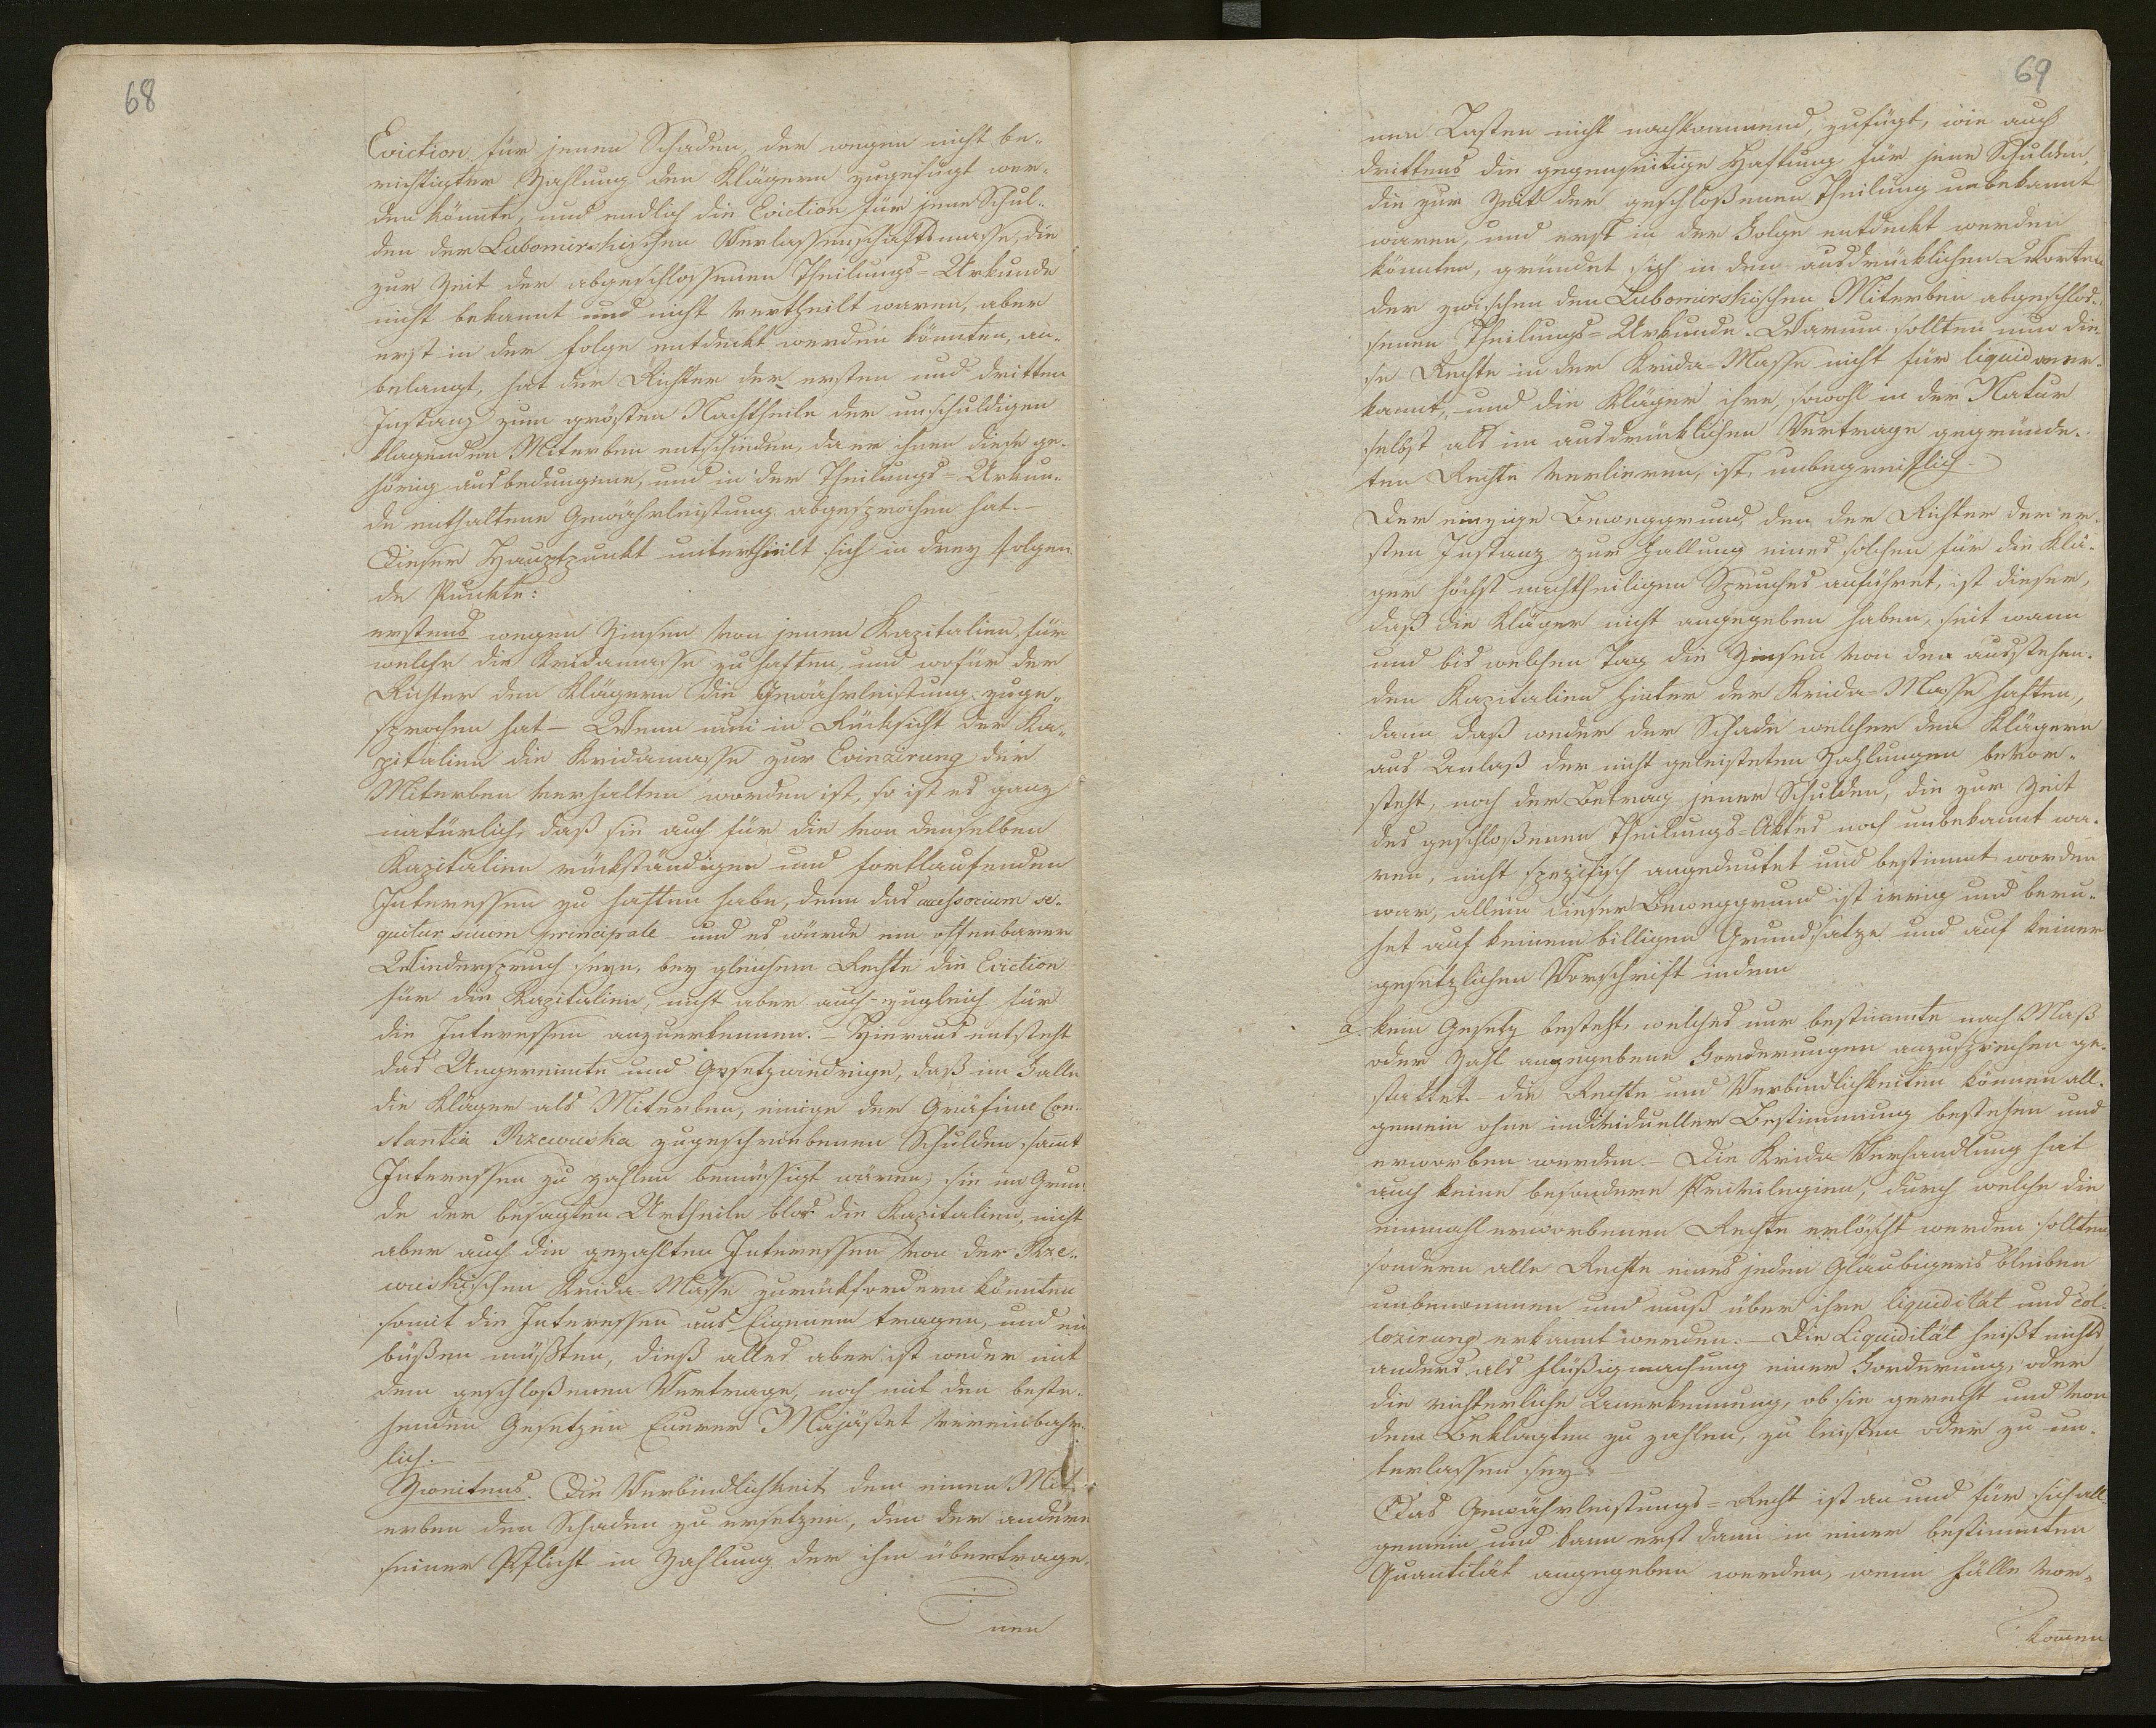 68
Eviction für jenen Schaden, der wegen nicht be-
richtigter Zahlung den Klägern zugefügt wer-
den könnte, und endlich die Eviction für jene Schul-
den der Lubomirskischen Verlassenschaftsmasse, die
zur Zeit der abgeschlossenen Theilungs=Urkunde
nicht bekannt und nicht vertheilt waren, aber
erst in der Folge entdekt werden könnten, an-
belangt, hat der Richter der ersten und dritten
Instanz zum grösten Nachtheile der unschuldigen
klagenden Miterben entschieden, da er ihnen diese ge-
hörig ausbedungene, und in der Theilungs=Urkun-
de enthaltene Gewährleistung abgesprochen hat.-
Dieser Hauptpunkt untertheilt sich in drey folgen-
de Punkte:
erstens wegen Zinsen von jenen Kapitalien, für
welche die Kridamasse zu haften, und wofür der
Richter den Klägern die Gewährleistung zuge-
sprochen hat - Wenn nun in Rüksicht der Ka-
pitalien die Kridamasse zur Evinzirung der
Miterben verhalten worden ist, so ist es ganz
natürlich, daß sie auch für die von denselben
Kapitalien rükständigen und fortlaufenden
Interessen zu haften habe, denn das accessorium se-
quitur suum principale - und es würde ein offenbarer
Wiederspruch seyn, bey gleichem Rechte die Eviction
für die Kapitalien, nicht aber auch zugleich für
die Interessen anzuerkennen. - Hieraus entsteht
das Ungereimte und Gesetzwiedrige, daß im Falle
die Kläger als Miterben, einige der Gräfinn Con-
stantia Rzewuska zugeschriebenen Schulden samt
Interessen zu zahlen bemüssigt wären, sie im Grun-
de der besagten Urtheile blos die Kapitalien, nicht
aber auch die gezahlten Interessen von der Rze-
wuskischen Krida-Masse zurükfordern könnten
somit die Interessen aus Eigenem tragen, und ein
büßen müßten, dieß alles aber ist weder mit
dem geschloßenen Vertrage, noch mit den beste-
henden Gesetzen Euerer Majästet vereinbahr-
lich.-
Zweitens. Die Verbindlichkeit dem einen Mit-
erben den Schaden zu ersetzen, den der andere
seiner Pflicht in Zahlung der ihm übertrage-
nen
69
nen Lasten nicht nachkommend, zufügt, wie auch
drittens die gegenseitige Haftung für jene Schulden,
die zur Zeit der geschloßenen Theilung unbekannt
waren, und erst in der Folge entdekt werden
könnten, gründet sich in den ausdrücklichen Worten
der zwischen den Lubomirskischen Miterben abgeschlos-
senen Theilungs=Urkunde. Warum sollten nun die-
se Rechte in der Krida=Masse nicht für liquid aner-
kannt, und die Kläger ihre, sowohl in der Natur
selbst als im ausdrüklichen Vertrage gegründe-
ten Rechte verlieren, ist unbegreiflich.
Der einzige Beweggrund den der Richter der er-
sten Instanz zur Fällung eines solchen für die Klä-
ger höchst nachtheiligen Spruches anführet, ist dieser,
daß die Kläger nicht angegeben haben, seit wann
und bis welchen Tag die Zinsen von den ausstehen-
den Kapitalien hinter der Krida=Masse haften,
dann daß weder der Schade welcher den Klägern
aus Anlaß der nicht geleisteten Zahlungen bevor-
steht, noch der Betrag jener Schulden, die zur Zeit
des geschloßenen Theilungs=Aktes noch unbekannt wa-
ren, nicht spezifisch angedeutet und bestimmt worden
war, allein dieser Beweggrund ist irrig und beru-
het auf keinem billigen Grundsatze und auf keiner
gesetzlichen Vorschrift indem
a. kein Gesetz besteht, welches nur bestimmte nach Maß
oder Zahl angegebene Forderungen anzusprechen ge-
stattet. - die Rechte und Verbindlichkeiten können all-
gemein ohne individueller Bestimmung bestehen und
erworben werden. - Die Krida Verhandlung hat
auch keine besondere Privilegien, durch welche die
einmahl erworbenen Rechte erlöscht werden sollten,
sondern alle Rechte eines jeden Gläubigers bleiben
unbenommen und muß über ihre liquidität und col-
lozirung erkannt werden. - Die Liquidität heißt nichts
anders als flüßigmachung einer Forderung, oder
die richterliche Anerkennung, ob sie gerecht und von
dem Beklagten zu zahlen, zu leisten oder zu un-
terlassen sey.-
Das Gewährleistungs=Recht ist an und für sich all-
gemein und kann erst dann in einer bestimmten
Quantität angegeben werden, wenn Fälle vor-
kommen